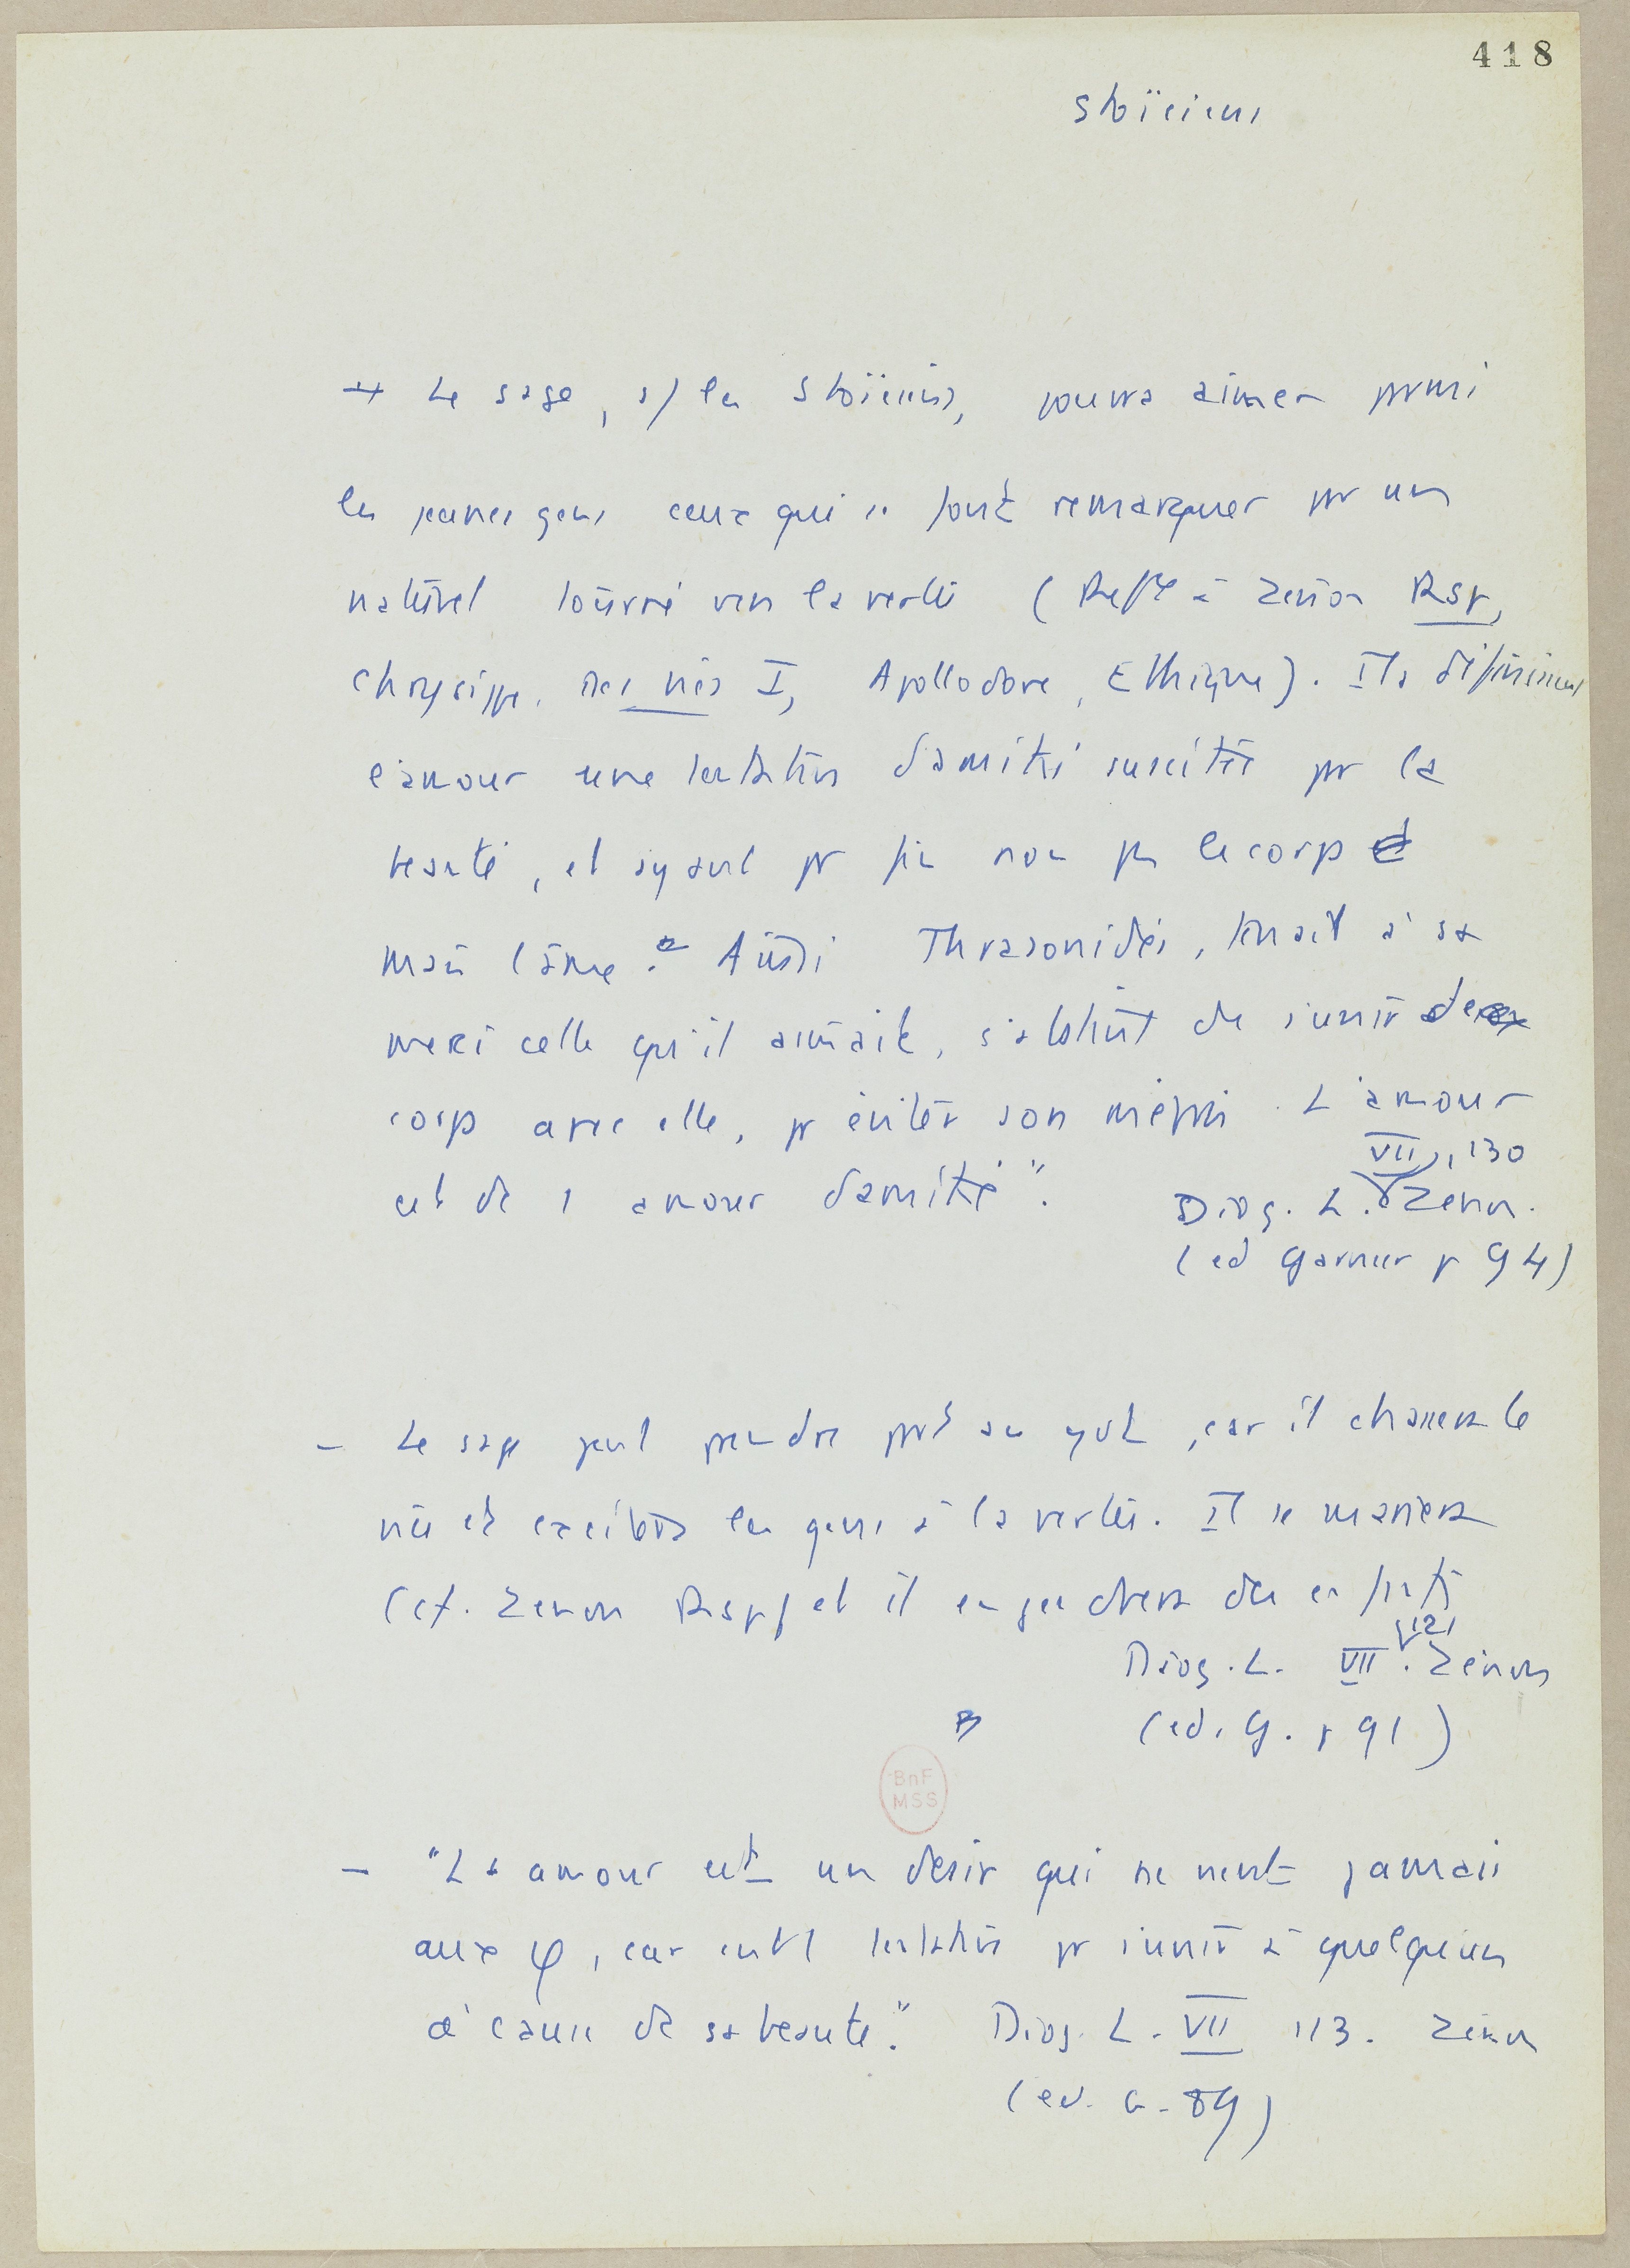 418
Stoïciens
→ Le sage, s/ les Stoïciens, pourra aimer parmi
les jeunes gens ceux qui se font remarquer pr un
naturel tourné vers la vertu ( à Zénon Rsp,
Chrysippe, Des vies I, Apollodore, Ethique). Ils définissent
l'amour une tentation d'amitié suscitée pr la
beauté, et ayant pr fin non pas le corps
mais l'âme. Ainsi Thrasonidès, tenait à sa
merci celle qu'il aimait, s'abstint de s'unir de
corps avec elle, pr éviter son mépris. L'amour
est de l amour d'amitié".
VII, 130
Diog. L. Zenon.
(ed Garnier p 94)
- Le sage peut prendre part au gvt, car il chassera le
vice et excitera les gens à la vertu. Il se mariera
(cf. Zenon Rsp) et il engendrera des enfants
121
Diog. L. VII. Zénon
(ed. G. p 91)
BnF
MSS
- "L amour est un désir qui ne vient jamais
aux φ, car c'est tentation pr s'unir à quelqu'un
à cause de sa beauté." Diog. L. VII 113. Zénon
(ed. G. 89)